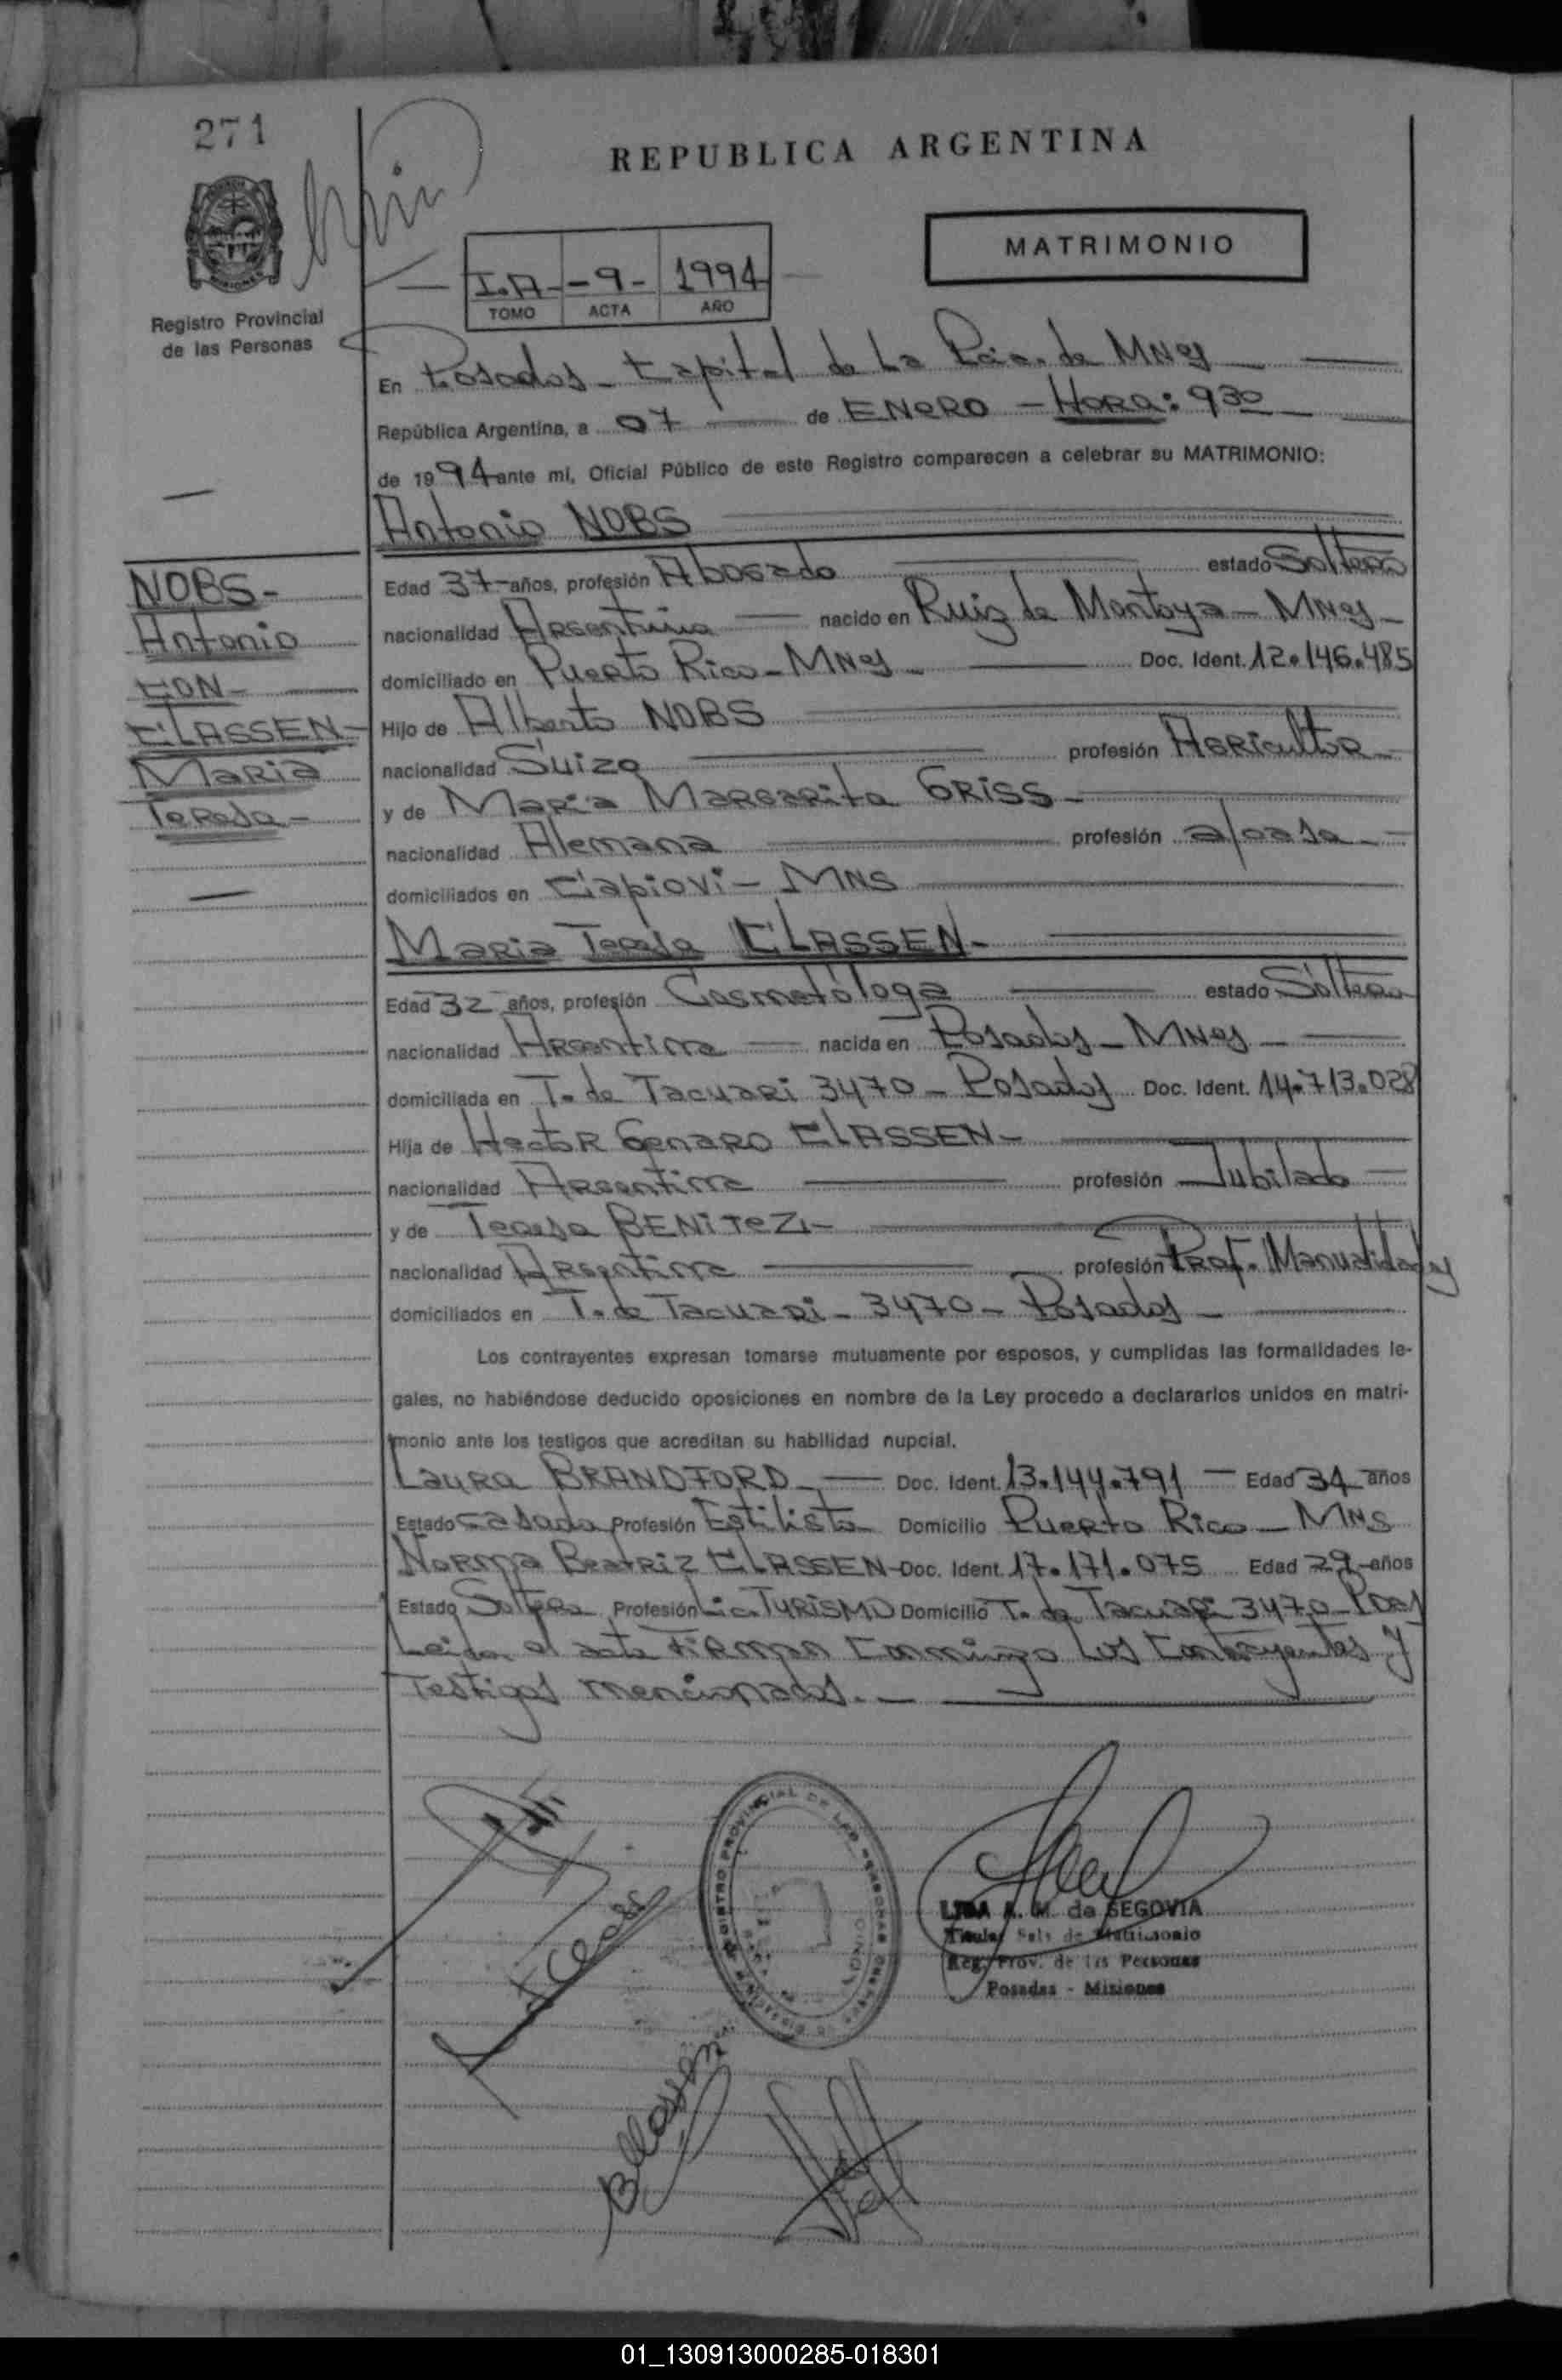 271
REPUBLICA ARGENTINA
MATRIMONIO
I.A- -9- 1994
TOMO ACTA AÑO
Registro Provincial
de las Personas
En Posadas - Capital de La Pcia. de MNes
República Argentina, a 07 de ENERO - HORA: 930
de 1994 ante mi, Oficial Público de este Registro comparecen a celebrar su MATRIMONIO:
Antonio NOBS
NOBS-
Antonio
CON-
CLASSEN-
Maria
Teresa-
Edad 37-años, profesión Abogado estado Soltero
nacionalidad Argentina nacido en Ruiz de Montoya - MNes-
domiciliado en Puerto Rico - MNes - Doc. Ident. 12.146.485
Hijo de Alberto NOBS
nacionalidad Suiza profesión Agricultor-
y de Maria Margarita GRISS-
nacionalidad Alemana profesión a/casa-
domiciliados en Capiovi - MNS
Maria Teresa CLASSEN-
Edad 32 años, profesión Cosmetóloga estado Soltera
nacionalidad Argentina nacida en Posadas - MNes -
domiciliada en T. de Tacuari 3470 - Posadas Doc. Ident. 14.713.028
Hija de Hector Genaro CLASSEN-
nacionalidad Argentina profesión Jubilado
y de Teresa BENITEZ.-
nacionalidad Argentina profesión Prof. Manualidades
domiciliados en T. de Tacuari - 3470 - Posadas -
Los contrayentes expresan tomarse mutuamente por esposos, y cumplidas las formalidades le-
gales, no habiéndose deducido oposiciones en nombre de la Ley procedo a declararlos unidos en matri-
monio ante los testigos que acreditan su habilidad nupcial.
Laura BRANDFORD - Doc. Ident. 13.144.791 - Edad 34 años
Estado casada Profesión Estilista Domicilio Puerto Rico - MNS
Norma Beatriz CLASSEN-Doc. Ident. 17.171.075 Edad 29-años
Estado Soltera Profesión Lic. TURISMO Domicilio T. de Tacuari 3470-Pdas
Leida el acta Firman Conmigo Los Contrayentes y
Testigos mencionados.-
LIDA A. M. de SEGOVIA
Titular Sala de Matrimonio
Reg. Prov. de las Personas
Posadas - Misiones
01_130913000285-018301